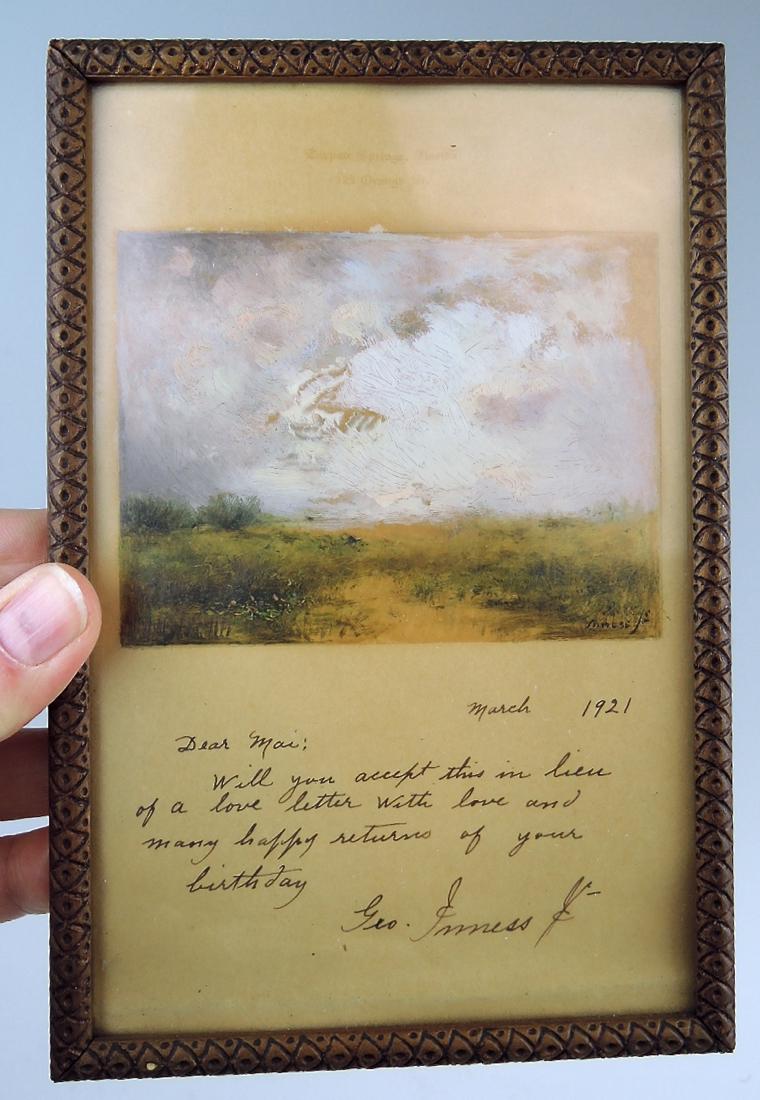 Tarpon Springs, Florida
Orange
Inness Jr
March 1921
Dear Mai:
Will you accept this in lieu
of a love letter with love and
many happy returns of your
birthday
Geo. Inness Jr